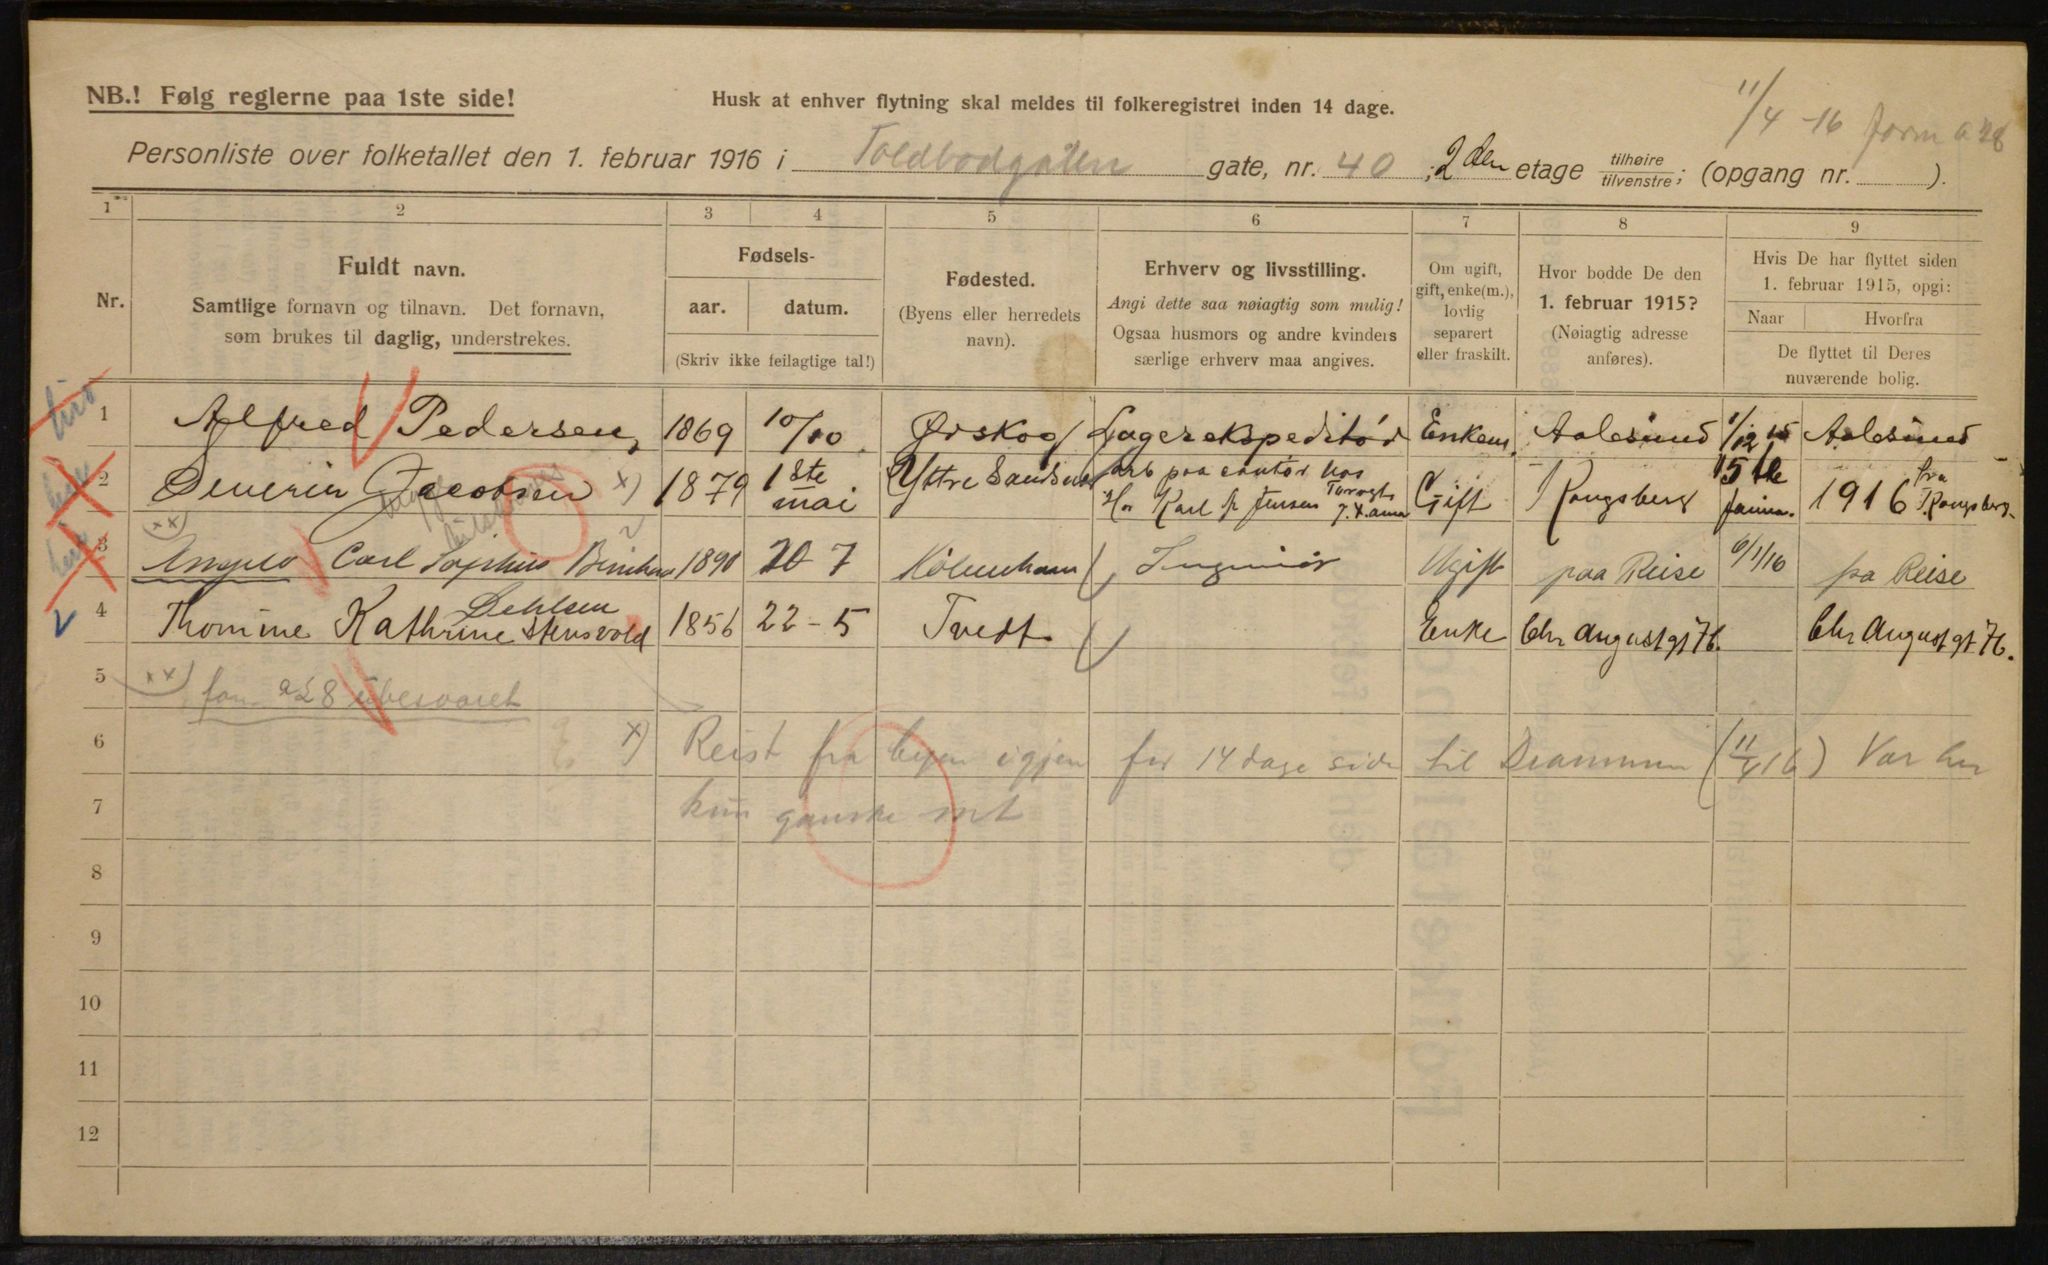 NB.! Følg reglerne paa 1ste side!
Husk at enhver flytning skal meldes til folkeregistret inden 14 dage.
11/4 -16 form a 28
Personliste over folketallet den 1. februar 1916 i Toldbodgaten gate, nr. 40 ; 2den etage tilhøire/tilvenstre; (opgang nr. ).
1 2 3 4 5 6 7 8 9
Nr.
Fuldt navn.
Samtlige fornavn og tilnavn. Det fornavn,
som brukes til daglig, understrekes.
Fødsels-
aar. datum.
(Skriv ikke feilagtige tal!)
Fødested.
(Byens eller herredets
navn).
Erhverv og livsstilling.
Angi dette saa nøiagtig som mulig!
Ogsaa husmors og andre kvinders
særlige erhverv maa angives.
Om ugift,
gift, enke(m.),
lovlig
separert
eller fraskilt.
Hvor bodde De den
1. februar 1915?
(Nøiagtig adresse
anføres).
Hvis De har flyttet siden
1. februar 1915, opgi:
Naar Hvorfra
De flyttet til Deres
nuværende bolig.
1 Alfred Pedersen, 1869 10/10 Ørskog Lagerekspeditør Enkem. Aalesund 1/12 15 Aalesund
2 Severin Jacobsen x) 1879 1ste mai Yttre arb paa contor hos Hr Karl Jensen Gift Kongsberg 15de 1916 fra Kongsberg
3 xx) Carl Sophus 1890 20 7 Köbenhavn Ingeniör Ugift paa Reise 6/1/16 pa Reise
4 Thomine Kathrine Dehlsen Stensvold 1856 22-5 Tvedt Enke Chr Augustgt 7b. Chr Augustgt 7b.
5 xx) a28 ubesvaret
6 x) Reist fra byen igjen for 14 dage side til Drammen (11/4 16) Var her
7 kun ganske
8
9
10
11
12